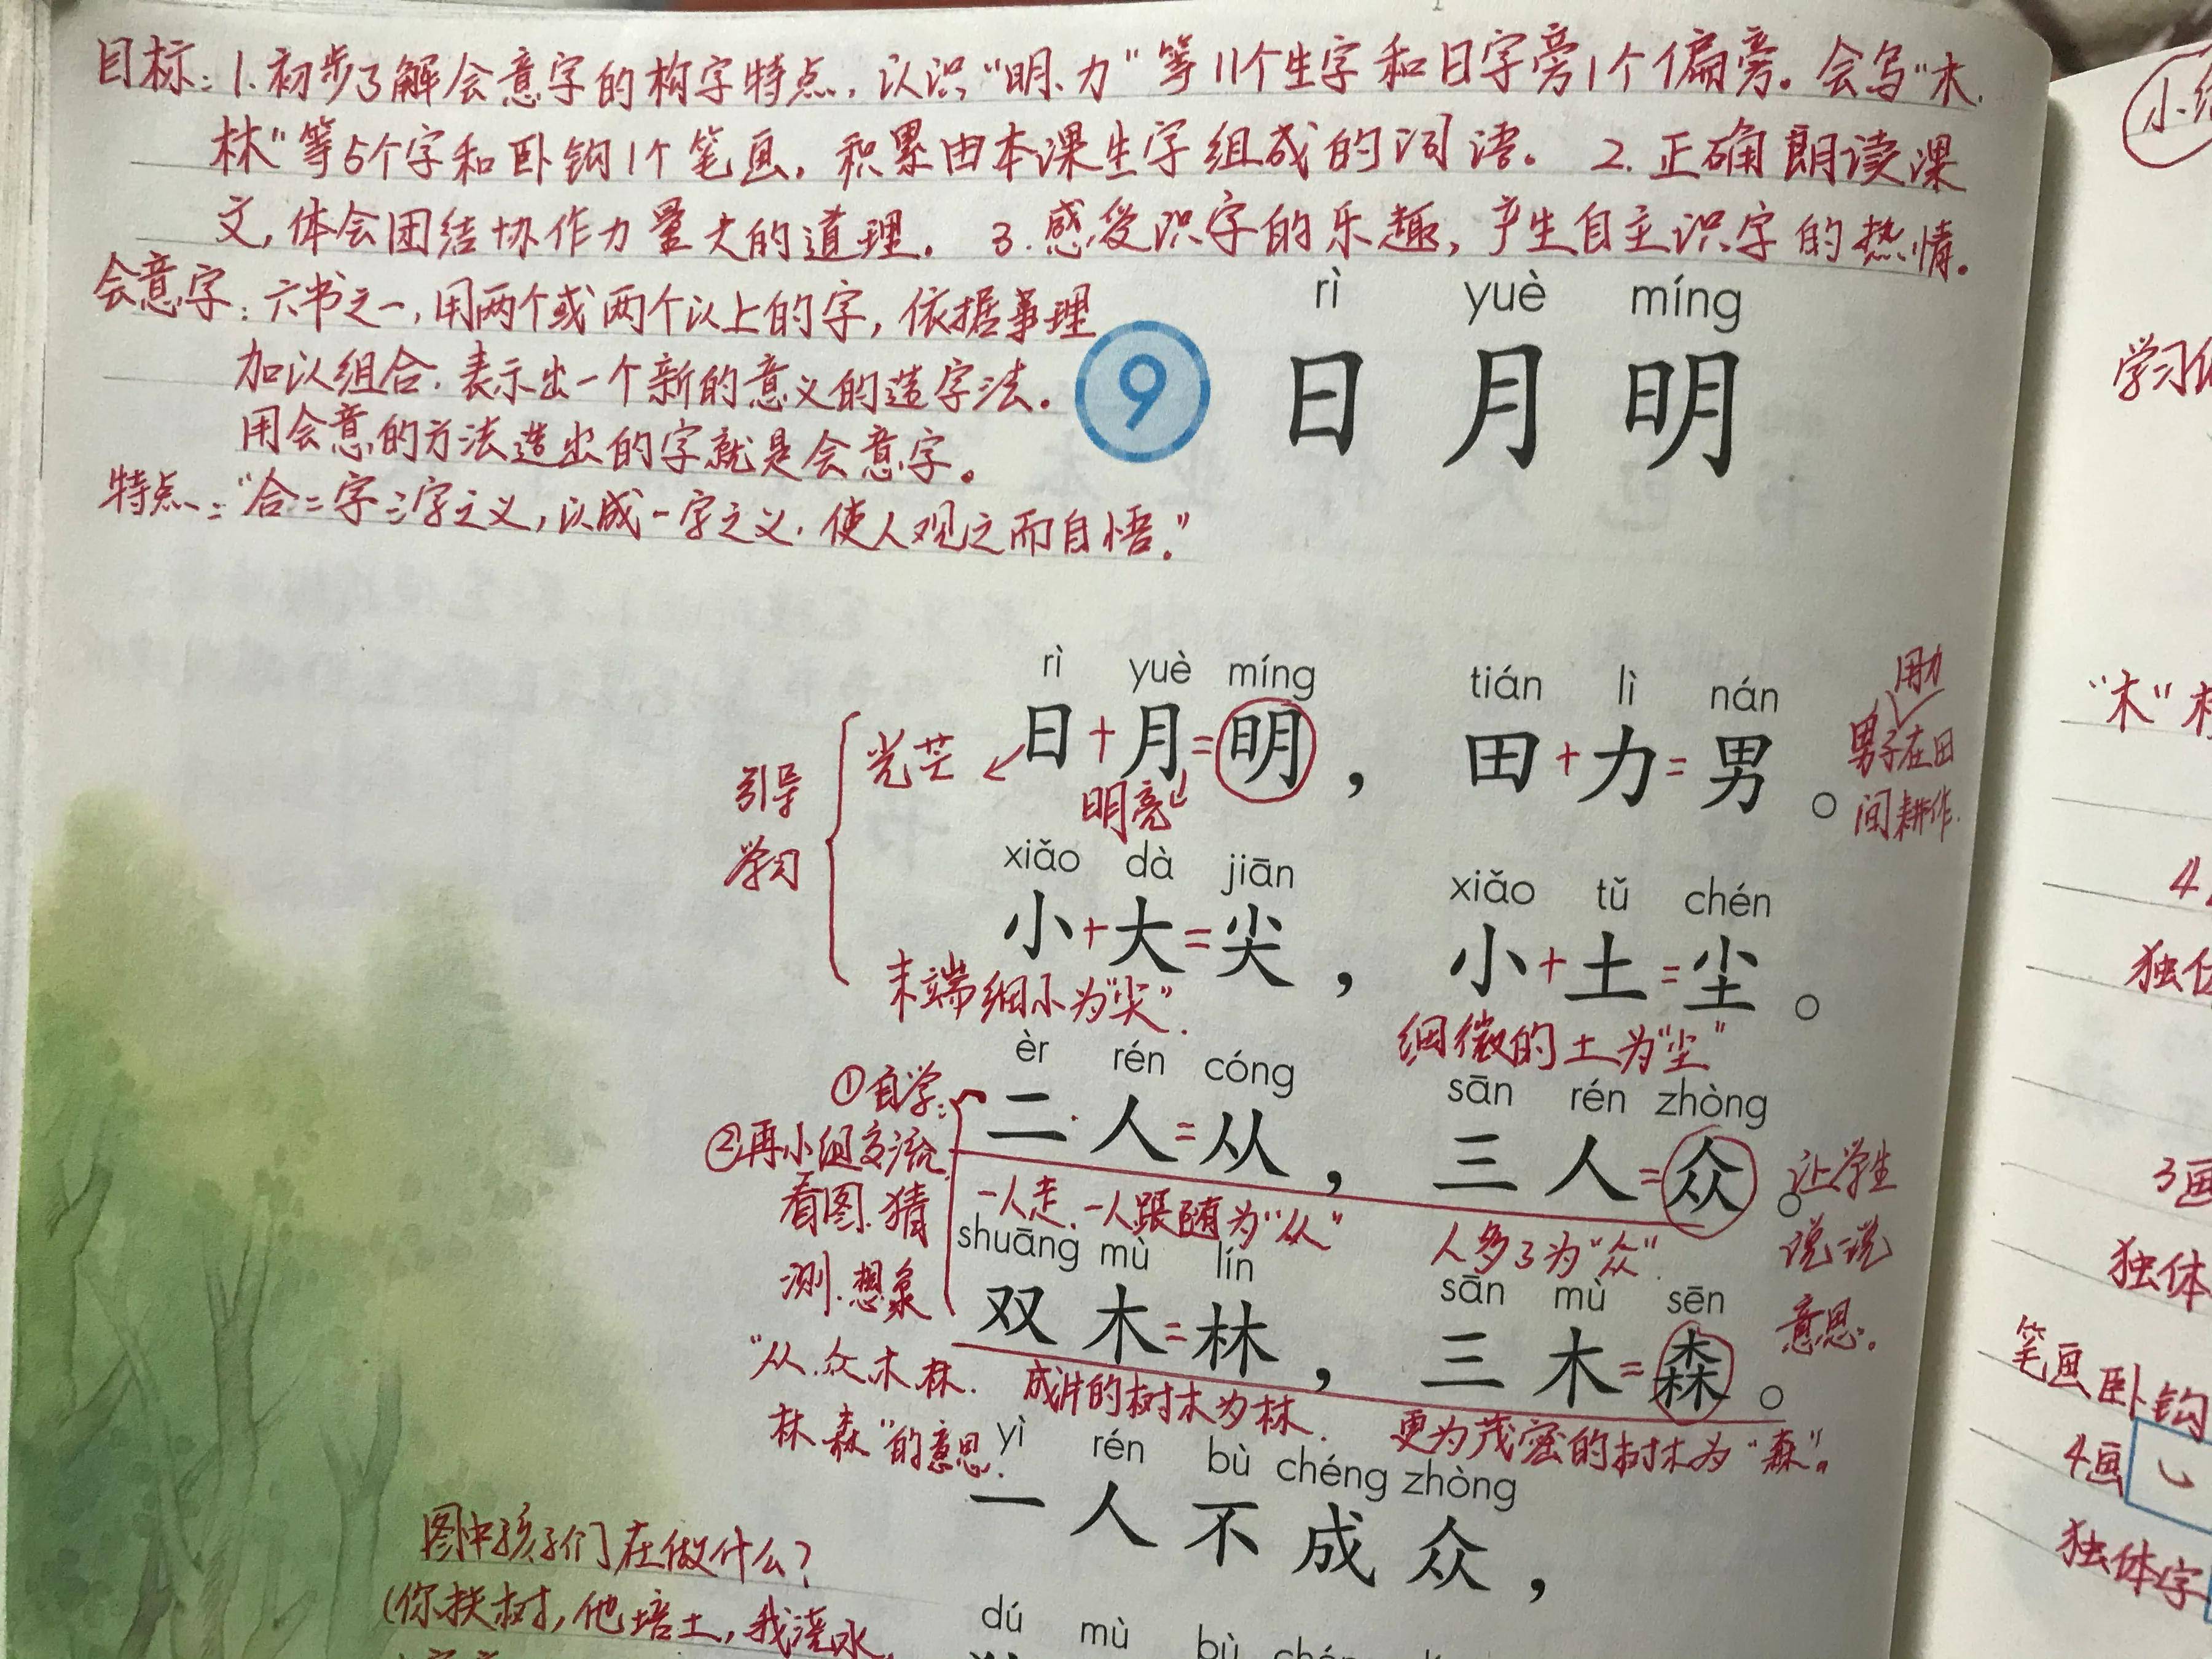 目标:1.初步了解会意字的构字特点,认识“明、力”等11个生字和日字旁1个偏旁。会写“木、
林”等5个字和卧钩1个笔画,积累由本课生字组成的词语。 2.正确朗读课
文,体会团结协作力量大的道理。 3.感受识字的乐趣,产生自主识字的热情。
会意字:六书之一,用两个或两个以上的字,依据事理
加以组合,表示出一个新的意义的造字法。
用会意的方法造出的字就是会意字。
特点:“合二字三字之义,以成一字之义,使人观之而自悟。”
rì yuè míng
9 日 月 明
rì yuè míng tián lì nán
日+月=明, 田+力=男。
光芒
明亮
引导
学习
用力
男子在田
间耕作.
xiǎo dà jiān xiǎo tǔ chén
小+大=尖, 小+土=尘。
末端细小为“尖”.
细微的土为“尘”
èr rén cóng sān rén zhòng
二人=从, 三人=众。
①自学:
②再小组交流
看图.猜
测.想象
一人走、一人跟随为“从”
人多了为“众”.
让学生
说一说
意思。
shuāng mù lín sān mù sēn
双木=林, 三木=森。
“从.众.木.林.
林.森”的意思.
成片的树木为林.
更为茂密的树木为“森”。
yì rén bù chéng zhòng
一人不成众,
图中孩子们在做什么?
(你扶树,他培土,我浇水,
dú mù bù
小
学习
“木”
4
独体
3画
独体
笔画卧钩
4画
独体字